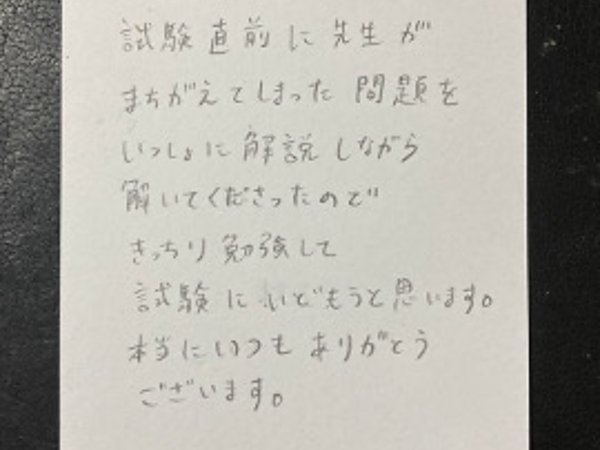 試験直前に先生が
まちがえてしまった問題を
いっしょに解説しながら
解いてくださったので
きっちり勉強して
試験にいどもうと思います。
本当にいつもありがとう
ございます。